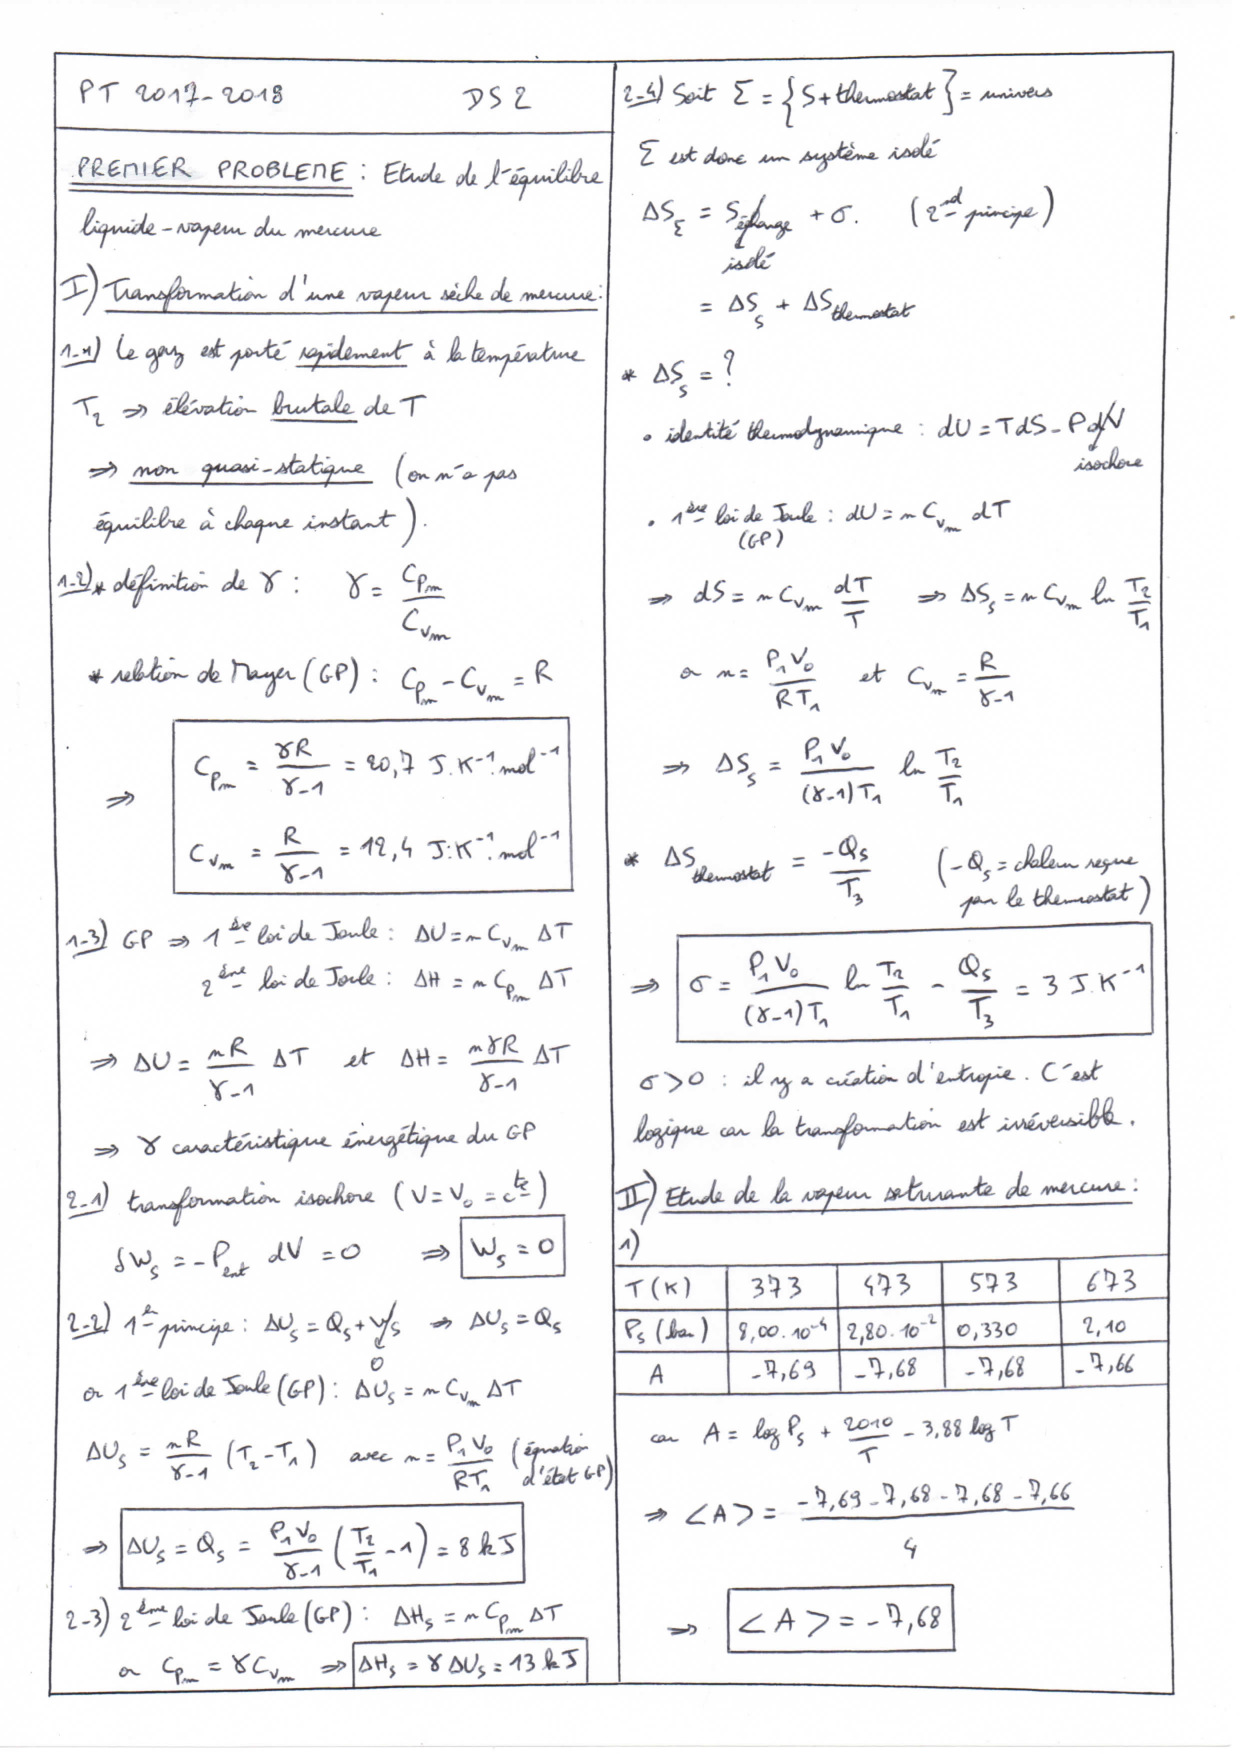 PT 2017-2018 DS 2
PREMIER PROBLEME : Etude de l'équilibre
liquide-vapeur du mercure
I) Transformation d'une vapeur sèche de mercure :
1-1) Le gaz est porté rapidement à la température
T₂ ⇒ élévation brutale de T
⇒ non quasi-statique (on n'a pas
équilibre à chaque instant).
1-2) * définition de γ : γ = Cpm / Cvm
* relation de Mayer (GP) : Cpm - Cvm = R
⇒ Cpm = γR / (γ-1) = 20,7 J.K⁻¹.mol⁻¹
Cvm = R / (γ-1) = 12,4 J.K⁻¹.mol⁻¹
1-3) GP ⇒ 1ère loi de Joule : ΔU = n Cvm ΔT
2ème loi de Joule : ΔH = n Cpm ΔT
⇒ ΔU = nR / (γ-1) ΔT et ΔH = nγR / (γ-1) ΔT
⇒ γ caractéristique énergétique du GP
2-1) transformation isochore (V = V₀ = cte)
δWs = -Pext dV = 0 ⇒ Ws = 0
2-2) 1er principe : ΔUs = Qs + Ws ⇒ ΔUs = Qs
0
or 1ère loi de Joule (GP) : ΔUs = n Cvm ΔT
ΔUs = nR / (γ-1) (T₂-T₁) avec n = P₁V₀ / RT₁ (équation
d'état GP)
⇒ ΔUs = Qs = P₁V₀ / (γ-1) (T₂/T₁ - 1) = 8 kJ
2-3) 2ème loi de Joule (GP) : ΔHs = n Cpm ΔT
or Cpm = γ Cvm ⇒ ΔHs = γ ΔUs = 13 kJ
2-4) Soit Σ = {S + thermostat} = univers
Σ est donc un système isolé
ΔSΣ = Séchange + σ. (2nd principe)
isolé
= ΔSs + ΔSthermostat
* ΔSs = ?
• identité thermodynamique : dU = TdS - PdV
isochore
• 1ère loi de Joule : dU = n Cvm dT
(GP)
⇒ dS = n Cvm dT/T ⇒ ΔSs = n Cvm ln T₂/T₁
or n = P₁V₀ / RT₁ et Cvm = R / (γ-1)
⇒ ΔSs = P₁V₀ / (γ-1)T₁ ln T₂/T₁
* ΔSthermostat = -Qs / T₃ (-Qs = chaleur reçue
par le thermostat)
⇒ σ = P₁V₀ / (γ-1)T₁ ln T₂/T₁ - Qs/T₃ = 3 J.K⁻¹
σ > 0 : il y a création d'entropie. C'est
logique car la transformation est irréversible.
II) Etude de la vapeur saturante de mercure :
1)
T (K) 373 473 573 673
Ps (bar) 8,00.10⁻⁴ 2,80.10⁻² 0,330 2,10
A -7,69 -7,68 -7,68 -7,66
car A = log Ps + 2010/T - 3,88 log T
⇒ <A> = (-7,69 - 7,68 - 7,68 - 7,66) / 4
⇒ <A> = -7,68